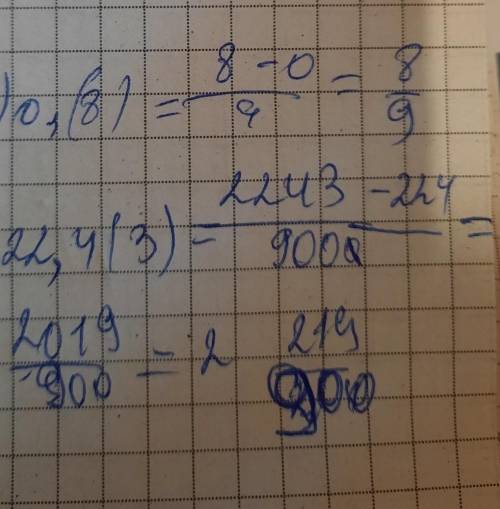 )0,(8) = 8 - 0 / 9 = 8 / 9
22,4(3) - 2243 - 224 / 9000 =
2019 / 900 = 2 219 / 900